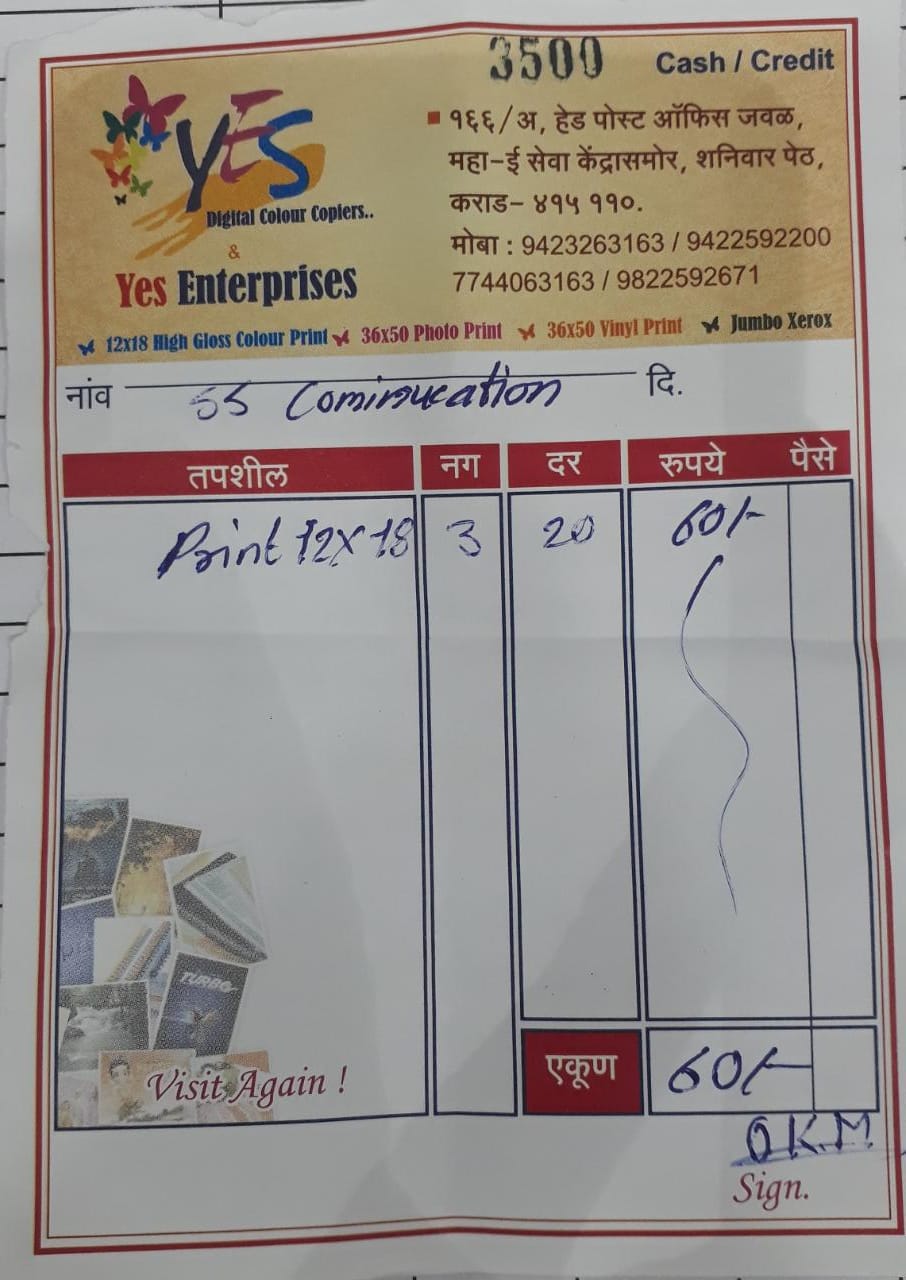 3500 Cash / Credit
YES
Digital Colour Copiers..
&
Yes Enterprises
१६६/अ, हेड पोस्ट ऑफिस जवळ,
महा-ई सेवा केंद्रासमोर, शनिवार पेठ,
कराड- ४१५ ११०.
मोबा : 9423263163 / 9422592200
7744063163 / 9822592671
12x18 High Gloss Colour Print 36x50 Photo Print 36x50 Vinyl Print Jumbo Xerox
नांव SS Cominucation दि.
तपशील नग दर रुपये पैसे
Print 12x18 3 20 60/-
TURBO
एकूण 60/-
Visit Again !
O.K.M
Sign.